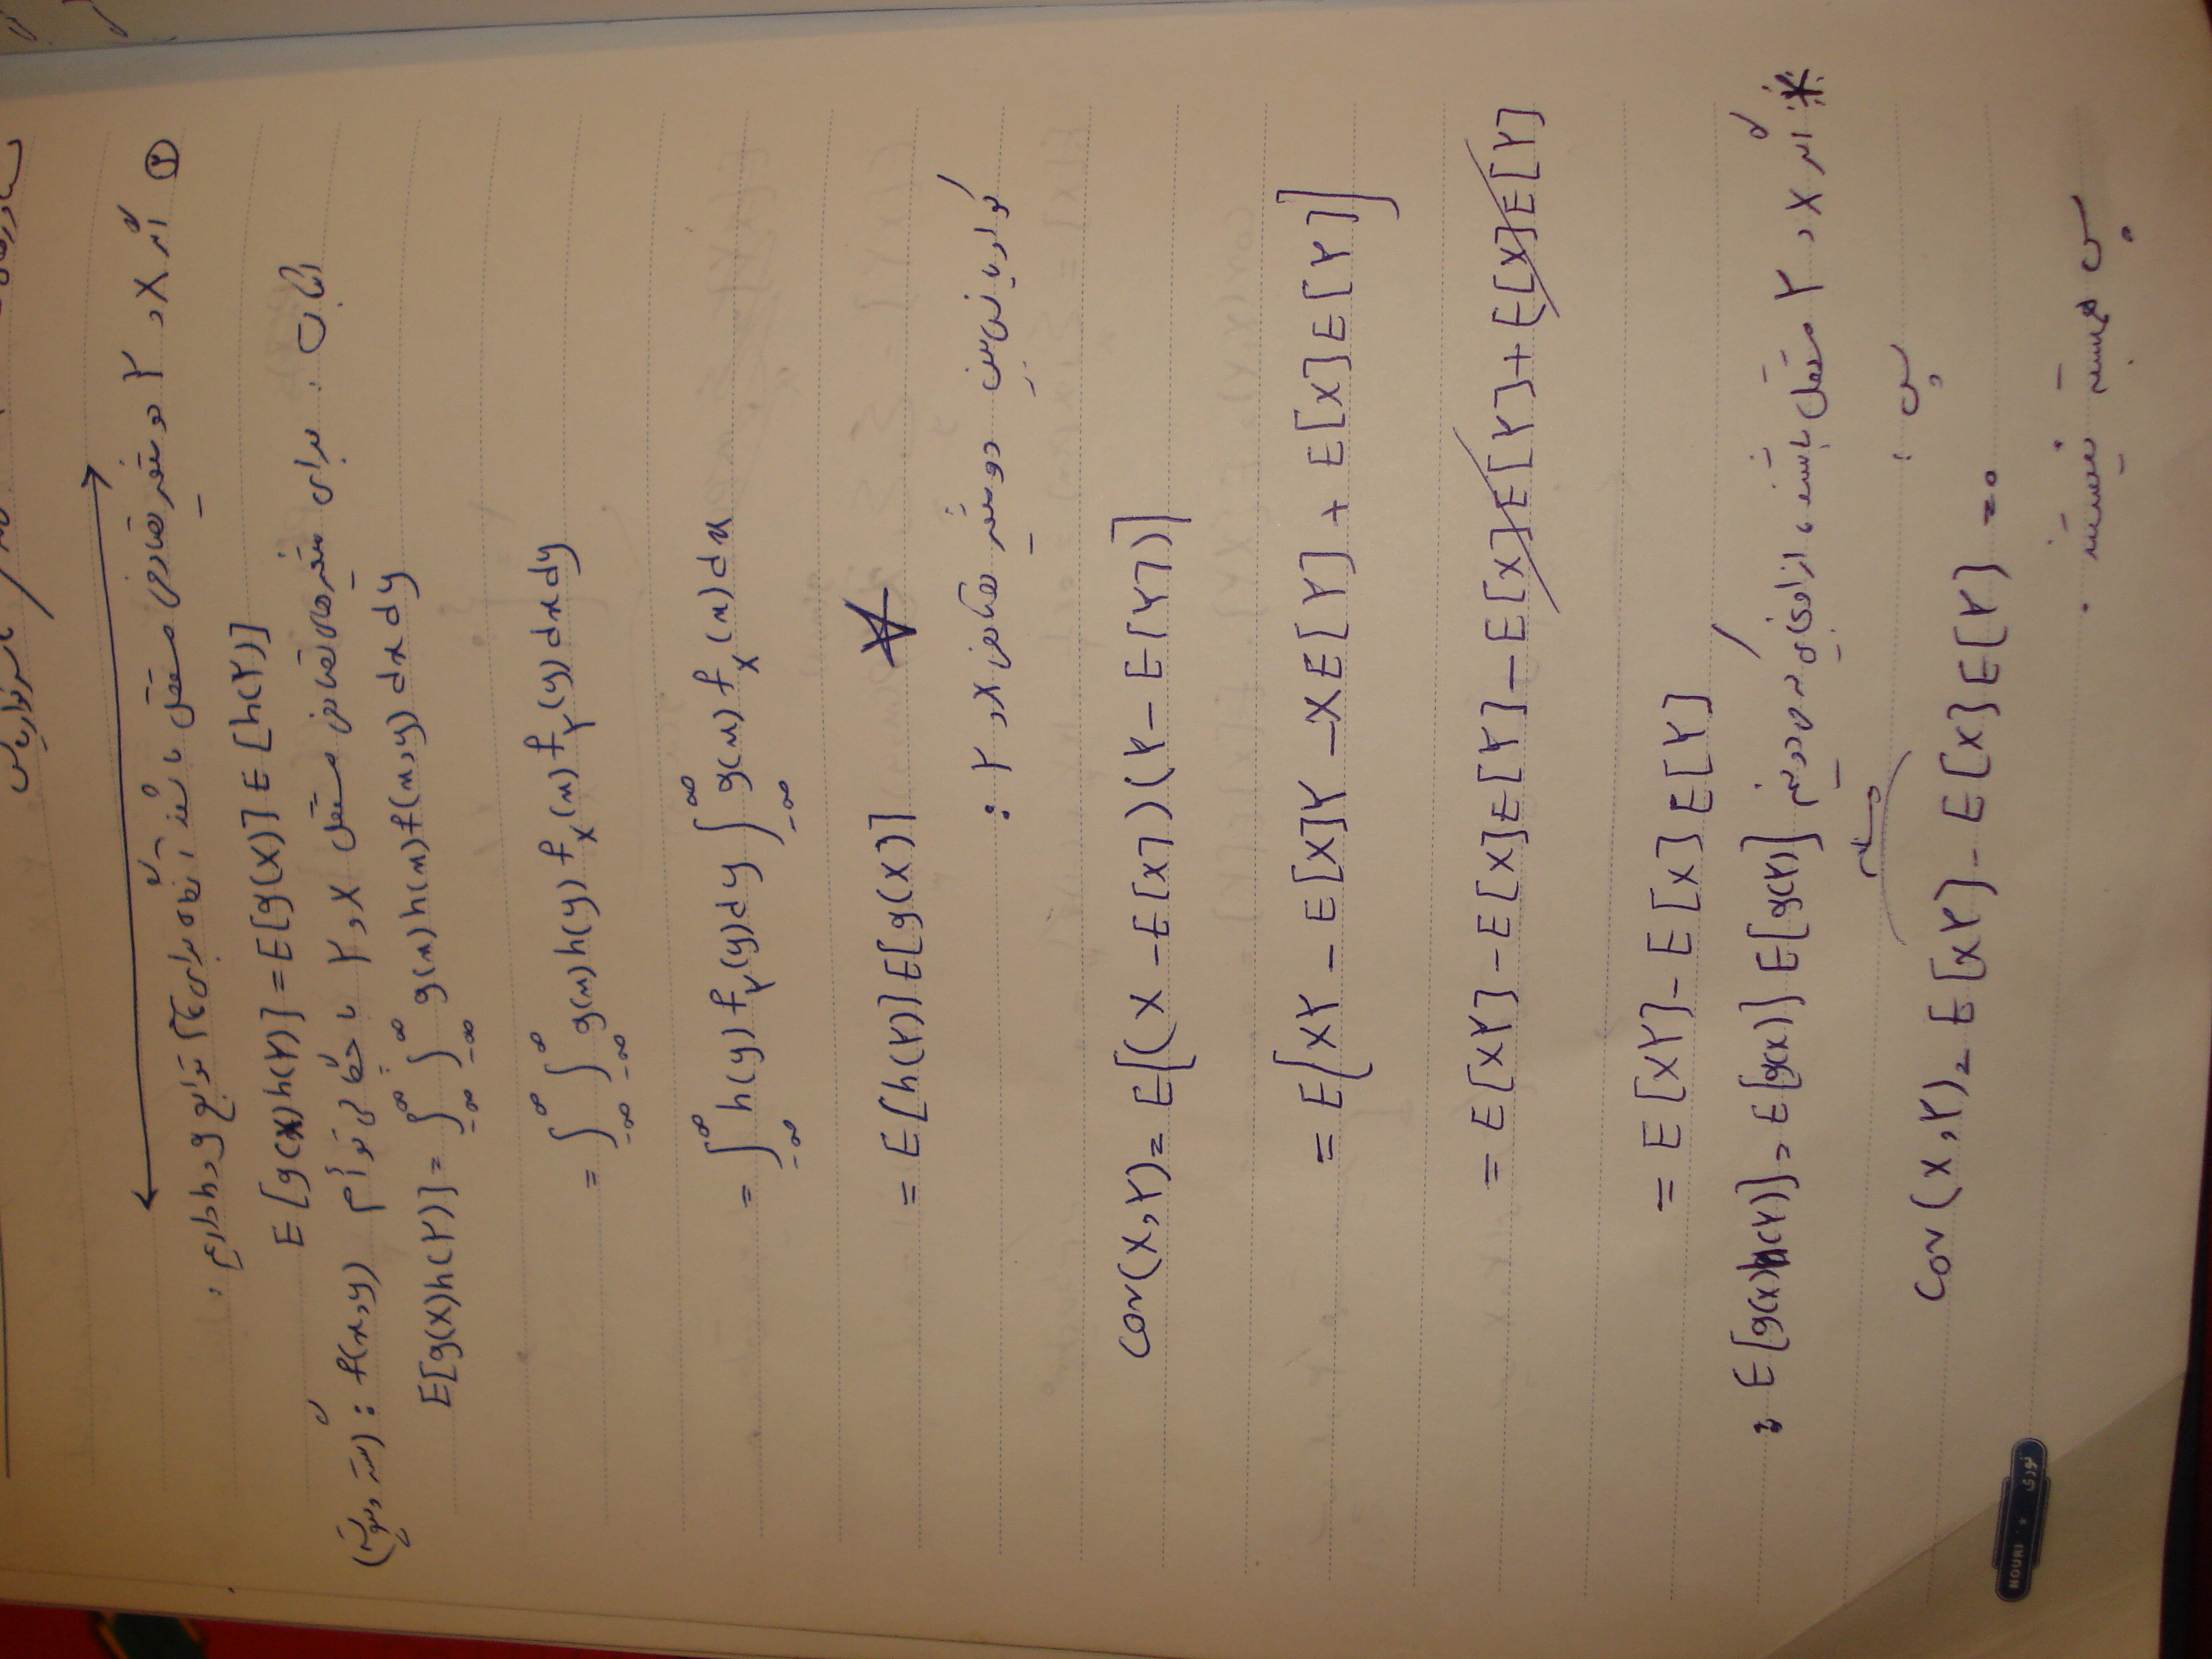 ② اگر X و Y دو متغیر تصادفی مستقل باشند، آنگاه برای تمام توابع g و h داریم :
E[g(X)h(Y)] = E[g(X)] E[h(Y)]
اثبات : برای متغیرهای تصادفی مستقل X و Y با چگالی توأم f(x,y) : (گسسته و پیوسته)
E[g(X)h(Y)] = ∫_{-∞}^{∞} ∫_{-∞}^{∞} g(x)h(x)f(x,y) dx dy
= ∫_{-∞}^{∞} ∫_{-∞}^{∞} g(x)h(y) f_X(x) f_Y(y) dx dy
= ∫_{-∞}^{∞} h(y) f_Y(y) dy ∫_{-∞}^{∞} g(x) f_X(x) dx
= E[h(Y)] E[g(X)]
کوواریانس بین دو متغیر تصادفی X و Y :
Cov(X,Y) = E[(X - E[X])(Y - E[Y])]
= E[XY - E[X]Y - XE[Y] + E[X]E[Y]]
= E[XY] - E[X]E[Y] - E[X]E[Y] + E[X]E[Y]
= E[XY] - E[X]E[Y]
* اگر X و Y مستقل باشند، از می دونیم E[g(X)h(Y)] = E[g(X)] E[g(Y)] :
پس :
مستقل
Cov(X,Y) = E[XY] - E[X]E[Y] = 0
پس همبسته نیستند .
NOURI * نوری